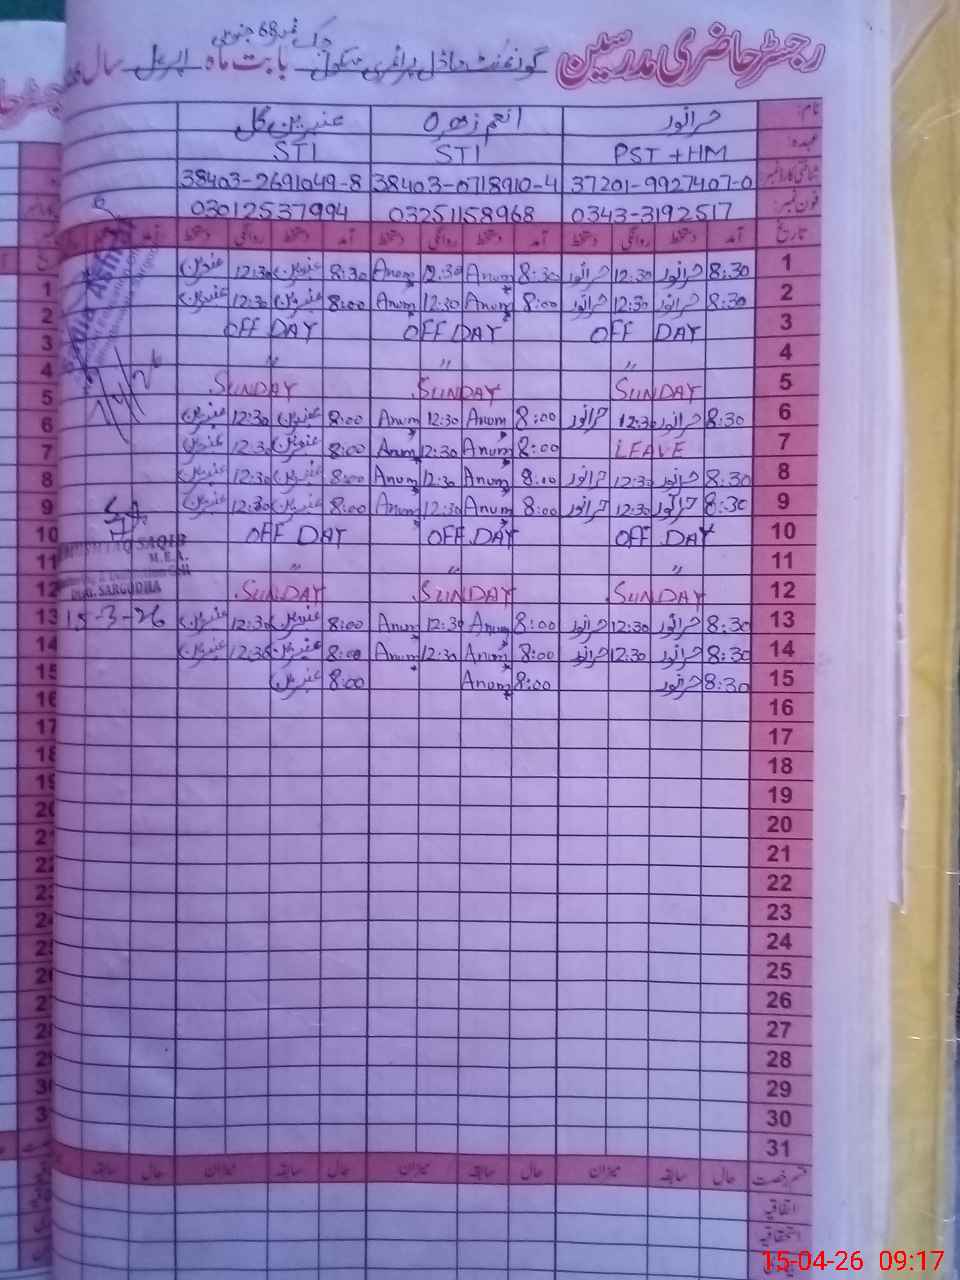 رجسٹر حاضری مدرسین گورنمنٹ ماڈل پرائمری سکول چک نمبر 68 جنوبی بابت ماہ اپریل سال
نام: حرانور انعم زھرہ عنبرین گل
عہدہ: PST +HM STI STI
شناختی کارڈ نمبر 37201-9927407-0 38403-0718910-4 38403-2691049-8
فون نمبر: 0343-3192517 03251158968 03012537994
تاریخ آمد دستخط روانگی دستخط آمد دستخط روانگی دستخط آمد دستخط روانگی دستخط آمد
1 8:30 حرانور 12:30 حرانور 8:30 Anum 12:30 Anum 8:30 عنبرین 12:30 عنبرین
2 8:30 حرانور 12:30 حرانور 8:00 Anum 12:30 Anum 8:00 عنبرین 12:30 عنبرین
3 OFF DAY OFF DAY OFF DAY
4 " " "
5 SUNDAY SUNDAY SUNDAY
6 8:30 حرانور 12:30 حرانور 8:00 Anum 12:30 Anum 8:00 عنبرین 12:30 عنبرین
7 LEAVE 8:00 Anum 12:30 Anum 8:00 عنبرین 12:30 عنبرین
8 8:30 حرانور 12:30 حرانور 8:00 Anum 12:30 Anum 8:00 عنبرین 12:30 عنبرین
9 8:30 حرانور 12:30 حرانور 8:00 Anum 12:30 Anum 8:00 عنبرین 12:30 عنبرین
10 OFF DAY OFF DAY OFF DAY
11 " " "
12 SUNDAY SUNDAY SUNDAY
13 8:30 حرانور 12:30 حرانور 8:00 Anum 12:30 Anum 8:00 عنبرین 12:30 عنبرین
14 8:30 حرانور 12:30 حرانور 8:00 Anum 12:30 Anum 8:00 عنبرین 12:30 عنبرین
15 8:30 حرانور 8:00 Anum 8:00 عنبرین
16
17
18
19
20
21
22
23
24
25
26
27
28
29
30
31
قسم رخصت حال سابقہ میزان حال سابقہ میزان حال سابقہ میزان حال سابقہ
اتفاقیہ
استحقاقیہ
SAQIB
M.E.A.
SARGODHA
15-3-26
1
2
3
4
5
6
7
8
9
10
11
12
13
14
15
16
17
18
15-04-26 09:17